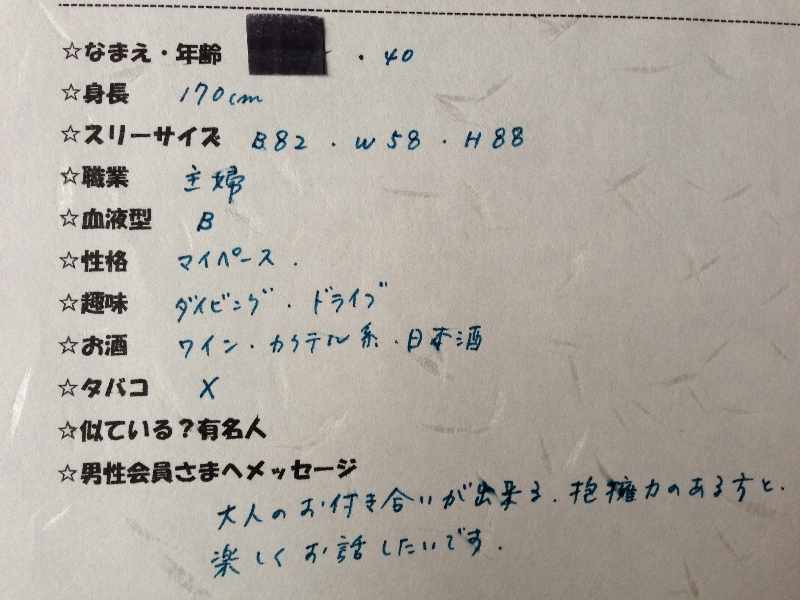 ☆なまえ・年齢 ・40
☆身長 170cm
☆スリーサイズ B.82 . W58 . H88
☆職業 主婦
☆血液型 B
☆性格 マイペース.
☆趣味 ダイビング.ドライブ
☆お酒 ワイン.カクテル系.日本酒
☆タバコ X
☆似ている?有名人
☆男性会員さまへメッセージ
大人のお付き合いが出来る.抱擁力のある方と.
楽しくお話したいです.